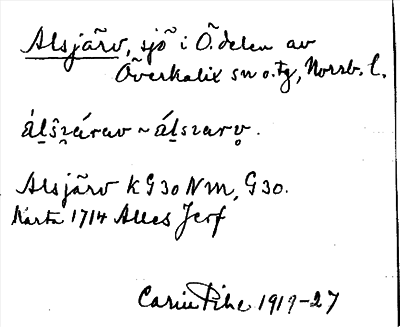 Alsjärv, sjö i Ö.delen av
Överkalix sn o. tg, Norrb. l.
áḻŝ̭zárav ~ áḻszarv̥.
Alsjärv K G30 NM, G30.
Karta 1714 Alles Jerf
Carin Pihl 1917-27